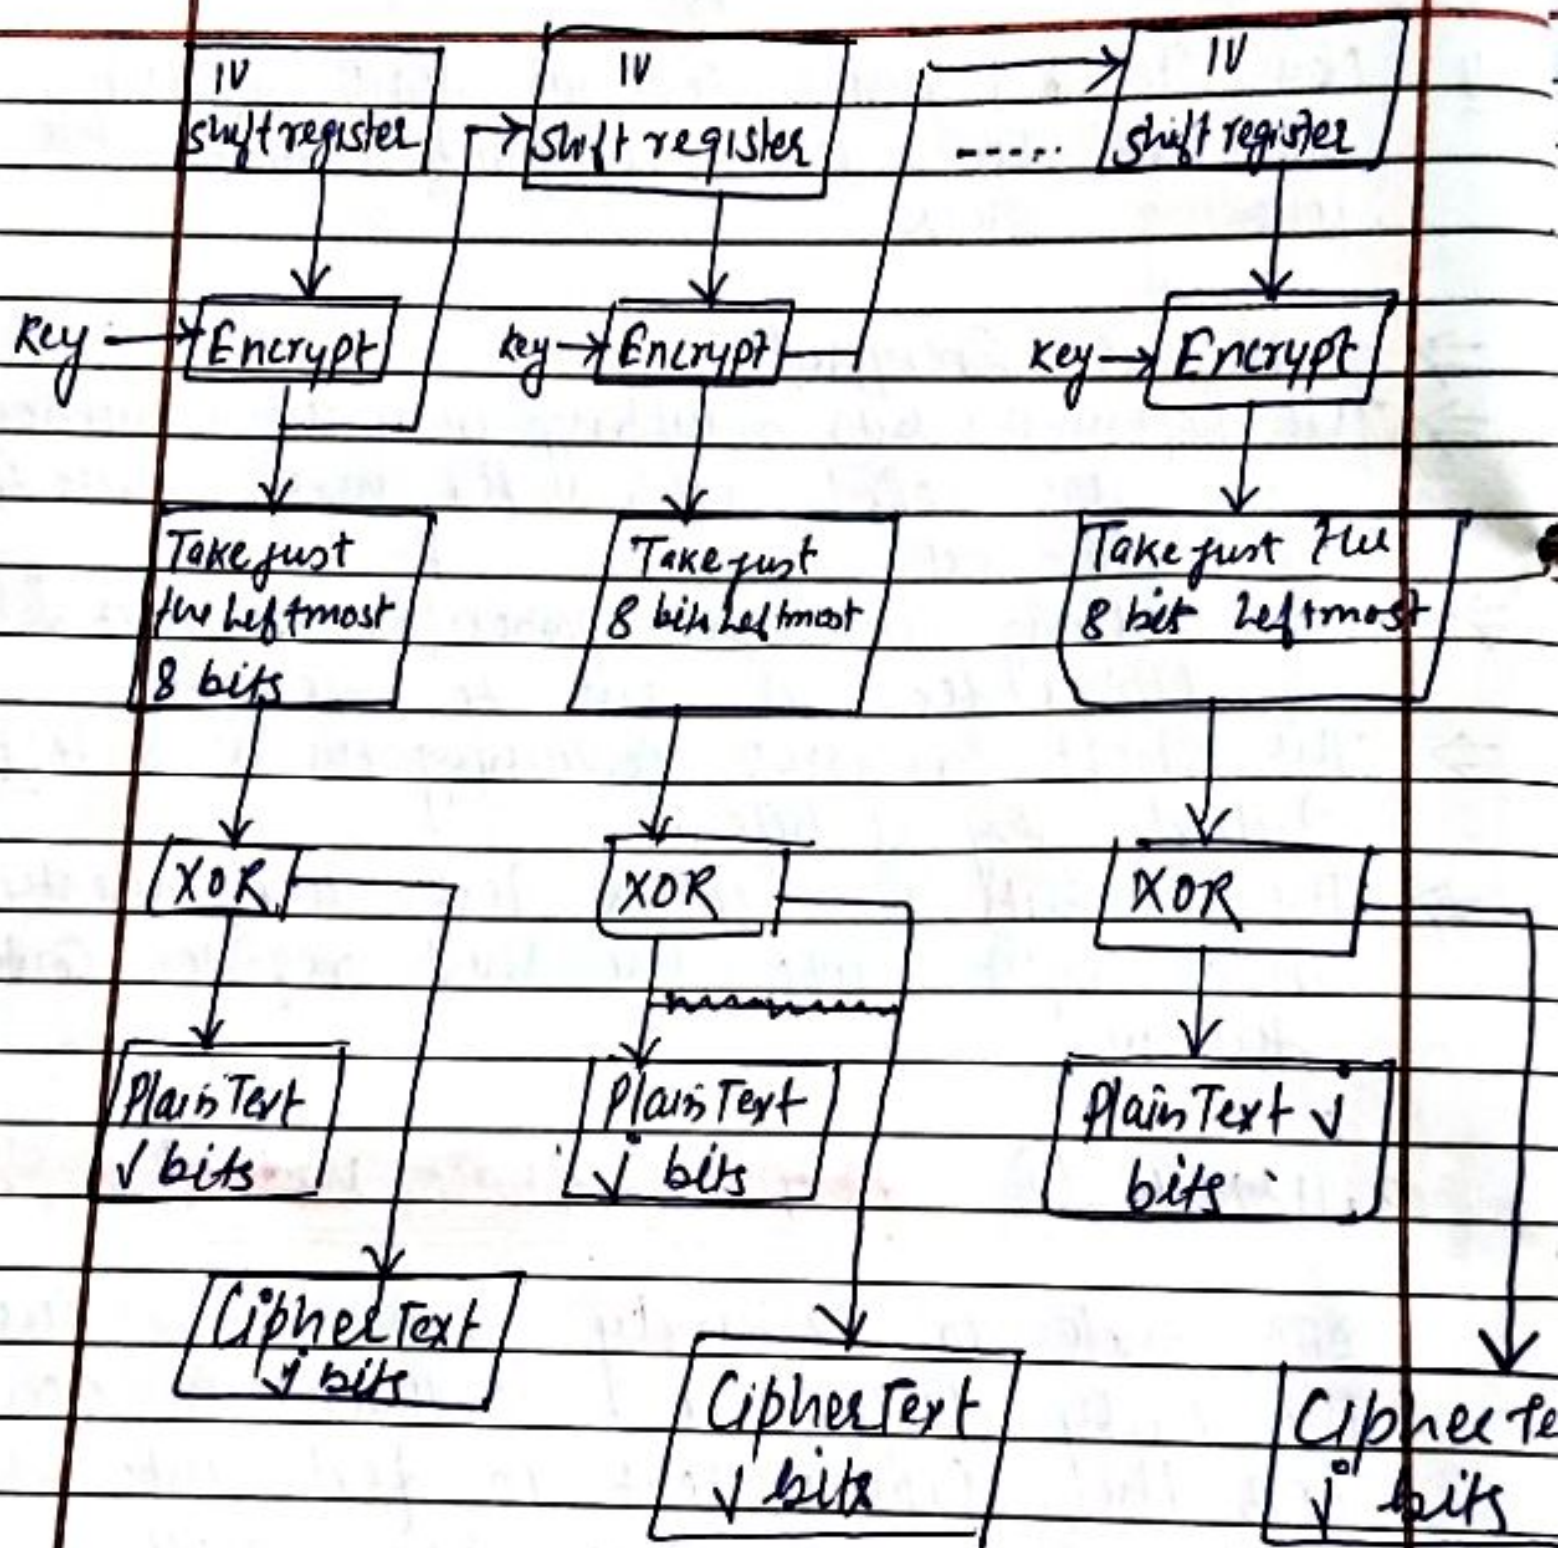 IV
shift register
IV
Shift register
.....
IV
shift register
Key
Encrypt
key
Encrypt
key
Encrypt
Take just
the Leftmost
8 bits
Take just
8 bits Leftmost
Take just the
8 bit Leftmost
XOR
XOR
XOR
PlainText
j bits
PlainText
j bits
PlainText j
bits
CipherText
j bits
CipherText
j bits
CipherTe
j bits